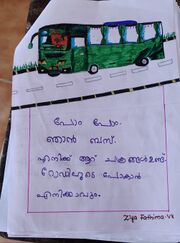 പോം പോം.
ഞാൻ ബസ്.
എനിക്ക് ആറ് ചക്രങ്ങളുണ്ട്.
റോഡിലൂടെ പോകാൻ
എനിക്കാവും.
Ziya Fathima.VK